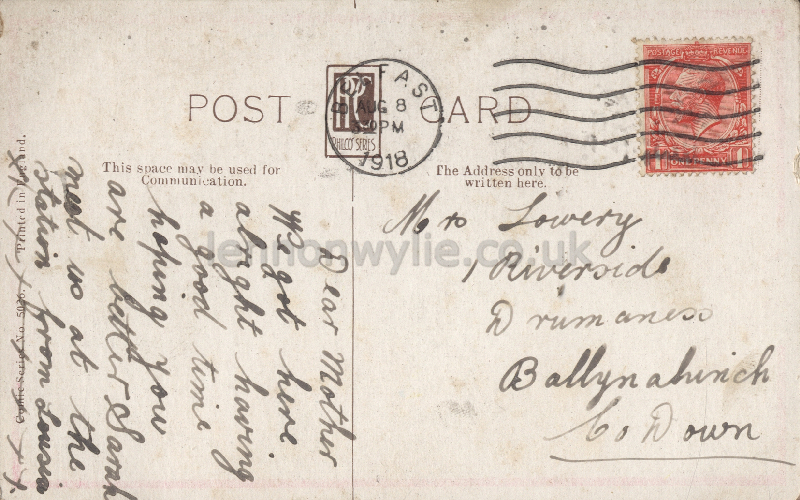 POST CARD
PHILCO SERIES
BELFAST
AUG 8
3 30 PM
1918
POSTAGE REVENUE
ONE PENNY
This space may be used for
Communication.
The Address only to be
written here.
Printed in England.
Comic Series No. 5036.
Dear Mother
We got here
alright having
a good time
hoping you
are better Sarah
met us at the
station from Lousia
x x x x x x x x
Mrs Lowery
1 Riverside
Drumaness
Ballynahinch
Co Down
Lennonwylie.co.uk